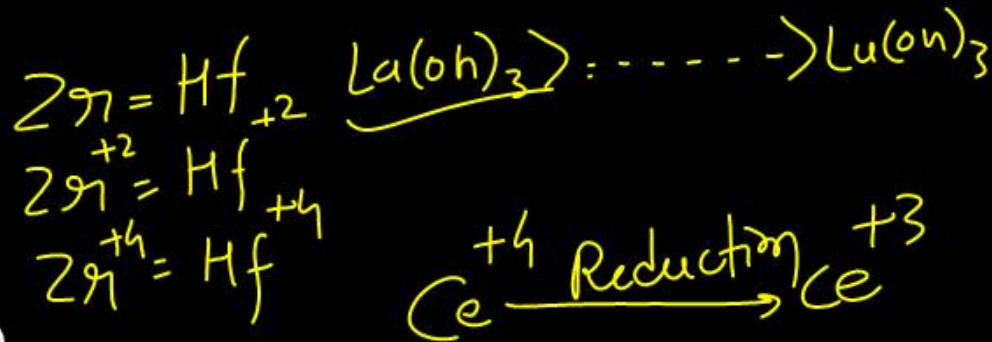 Zr = Hf
Zr+2 = Hf+2
Zr+4 = Hf+4
La(oh)3 > : - - - - - -> Lu(oh)3
Ce+4 Reduction → Ce+3